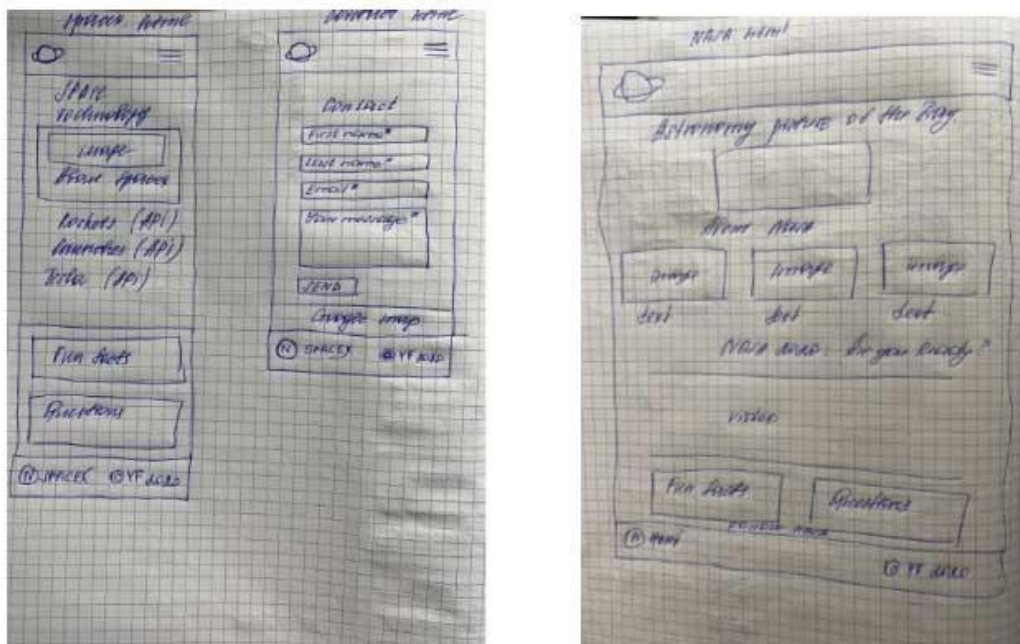 Spacex home
SPACE
Technology
image
About Spacex
Rockets (API)
(API)
(API)
Fun facts
Questions
N SPACEX © YF 2020
home
Contact
First name*
Last name*
Email*
Your message*
SEND
Google map
N SPACEX © YF 2020
NASA home
Astronomy picture of the Day
About NASA
image image image
text text text
NASA 2020: Are you Ready?
video
Fun facts Questions
N
© YF 2020